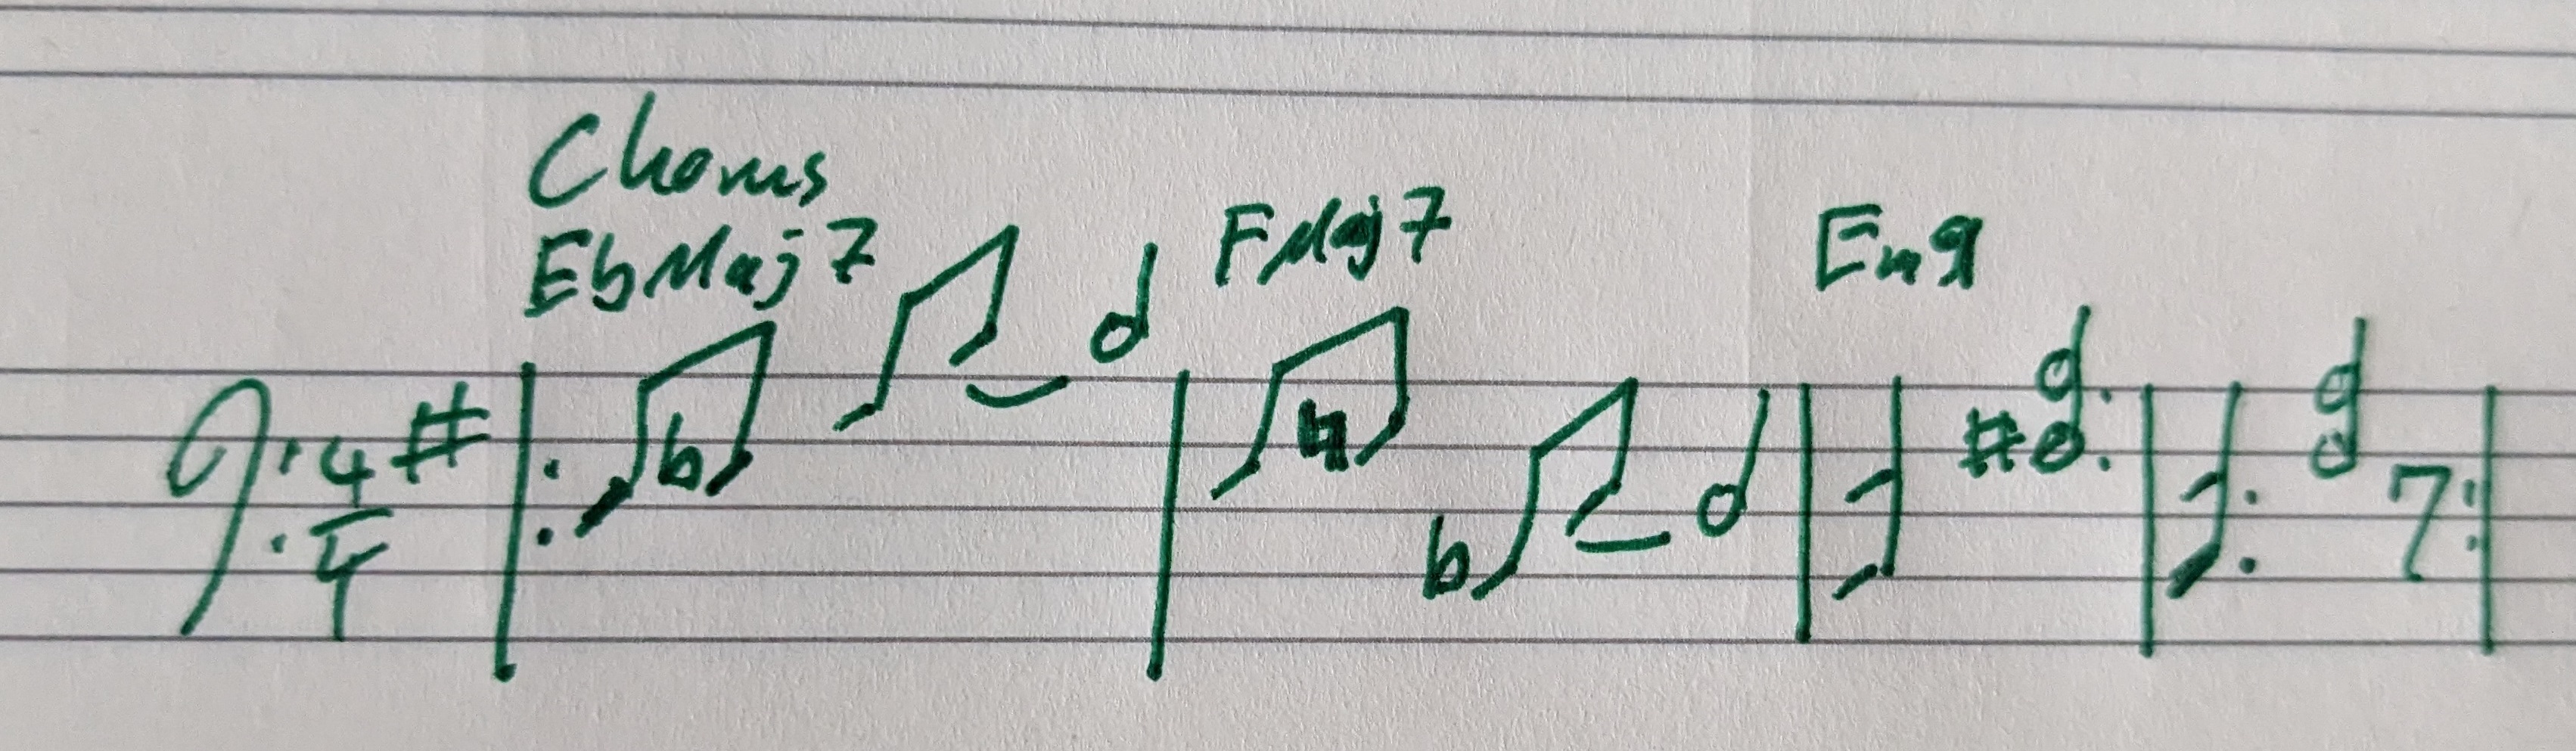 Chorus
EbMaj7 FMaj7 Em9
4
4